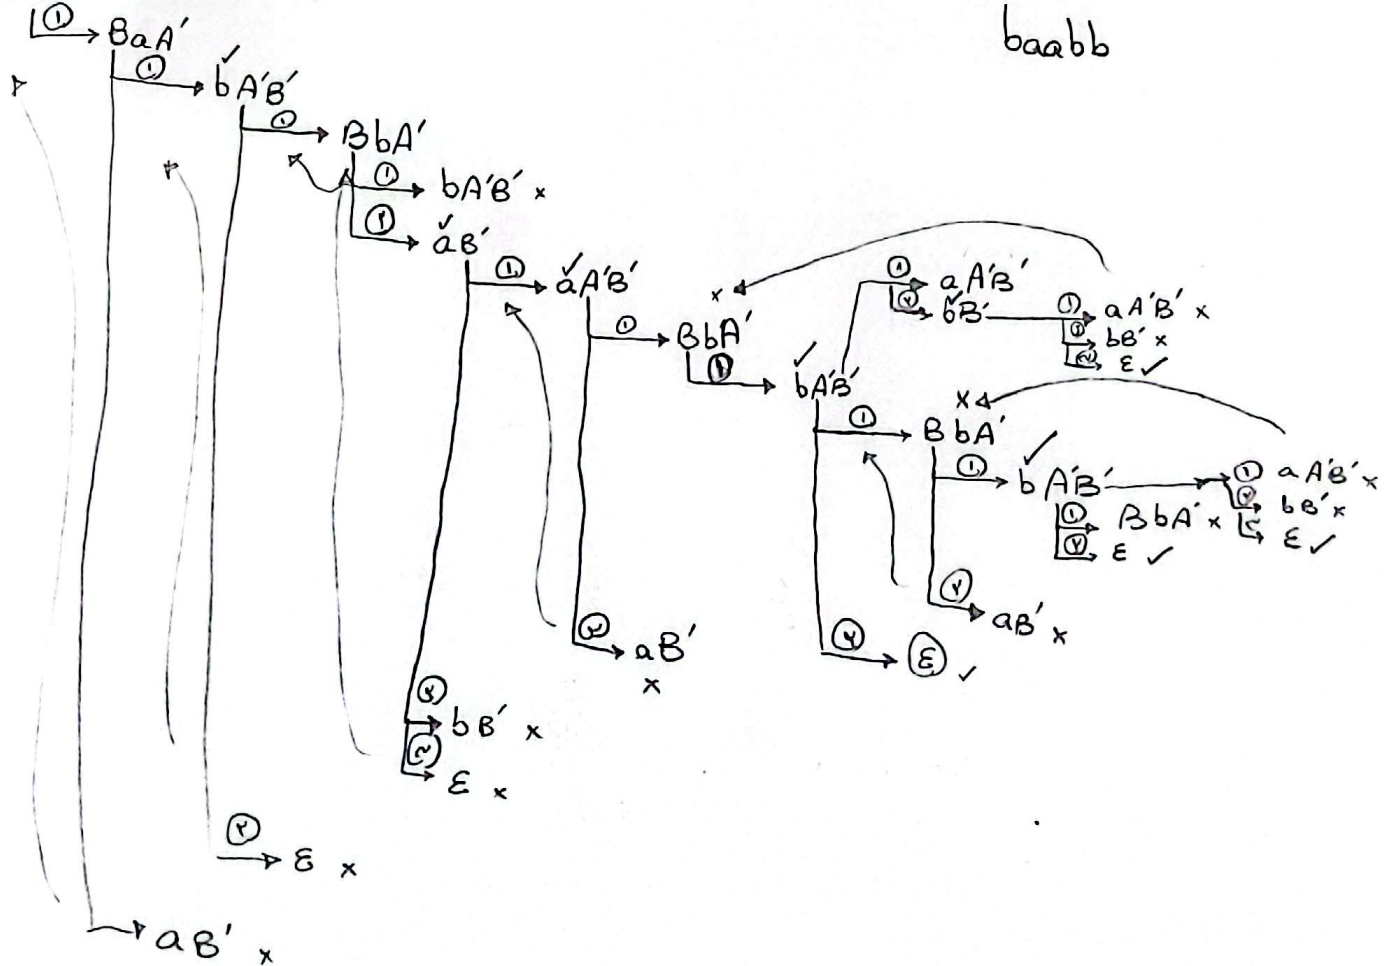 ① BaA′
baabb
① b A′B′
① BbA′
① bA′B′ ×
② aB′
① aA′B′
① BbA′ ×
① bA′B′
① aA′B′
② bB′
① aA′B′ ×
② bB′ ×
③ ε ✓
① BbA′ ×
① b A′B′
① BbA′ ×
② ε ✓
① aA′B′ ×
② bB′ ×
ε ✓
② aB′ ×
② ε ✓
② aB′ ×
② bB′ ×
③ ε ×
② ε ×
aB′ ×